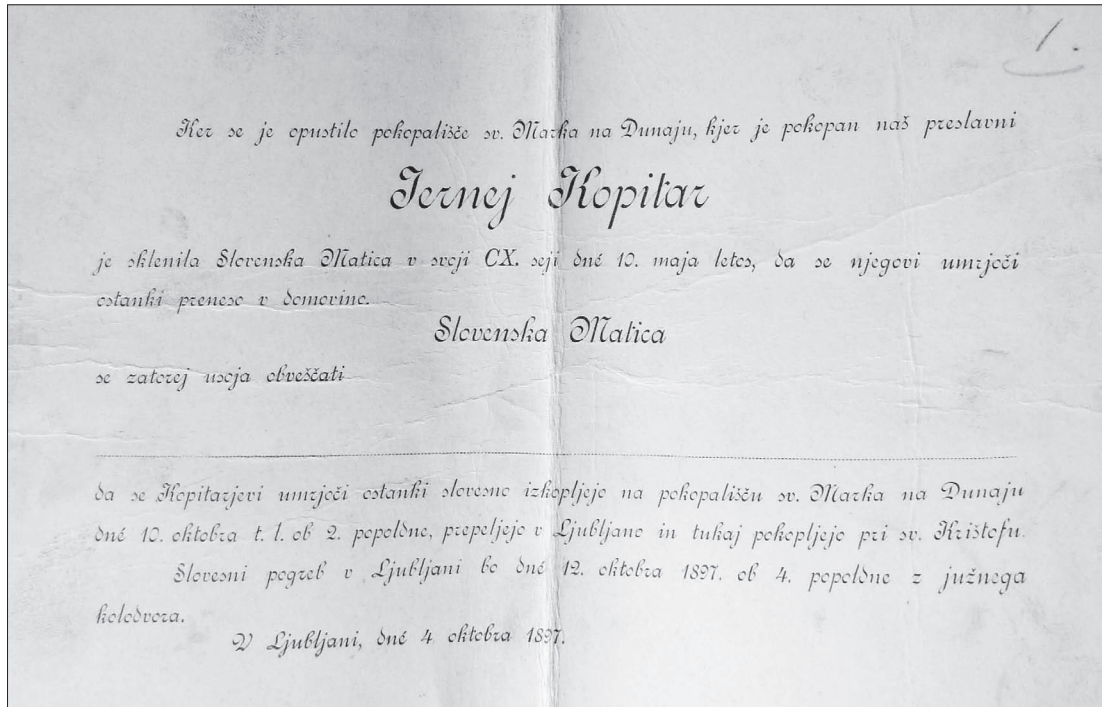 1.
Ker se je opustilo pokopališče sv. Marka na Dunaju, kjer je pokopan naš preslavni
Jernej Kopitar
je sklenila Slovenska Matica v svoji CX. seji dné 10. maja letos, da se njegovi umrjoči
ostanki preneso v domovino.
Slovenska Matica
se zatorej usoja obveščati
da se Kopitarjevi umrjoči ostanki slovesno izkopljejo na pokopališču sv. Marka na Dunaju
dné 10. oktobra t. l. ob 2. popoldne, prepeljejo v Ljubljano in tukaj pokopljejo pri sv. Krištofu.
Slovesni pogreb v Ljubljani bo dné 12. oktobra 1897. ob 4. popoldne z južnega
kolodvora.
V Ljubljani, dné 4 oktobra 1897.